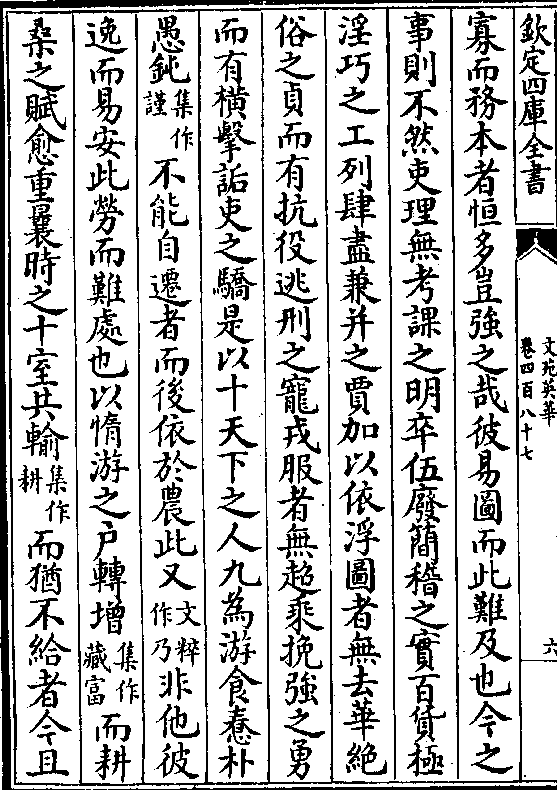 欽定四庫全書
文苑英華
卷四百八十七
六
寡而務本者恒多豈強之哉彼易圖而此難及也今之
事則不然吏理無考課之明卒伍廢蕳稽之實百貨極
淫巧之工列肆盡兼并之賈加以依浮圖者無去華絶
俗之貞而有抗役逃刑之寵戎服者無超乘挽強之勇
而有横擊詬吏之驕是以十天下之人九為游食惷朴
愚鈍集作謹不能自遷者而後依於農此又文粹作乃非他彼
逸而易安此勞而難處也以惰游之户轉增集作藏富而耕
桑之賦愈重曩時之十室共輸集作耕而猶不給者今且